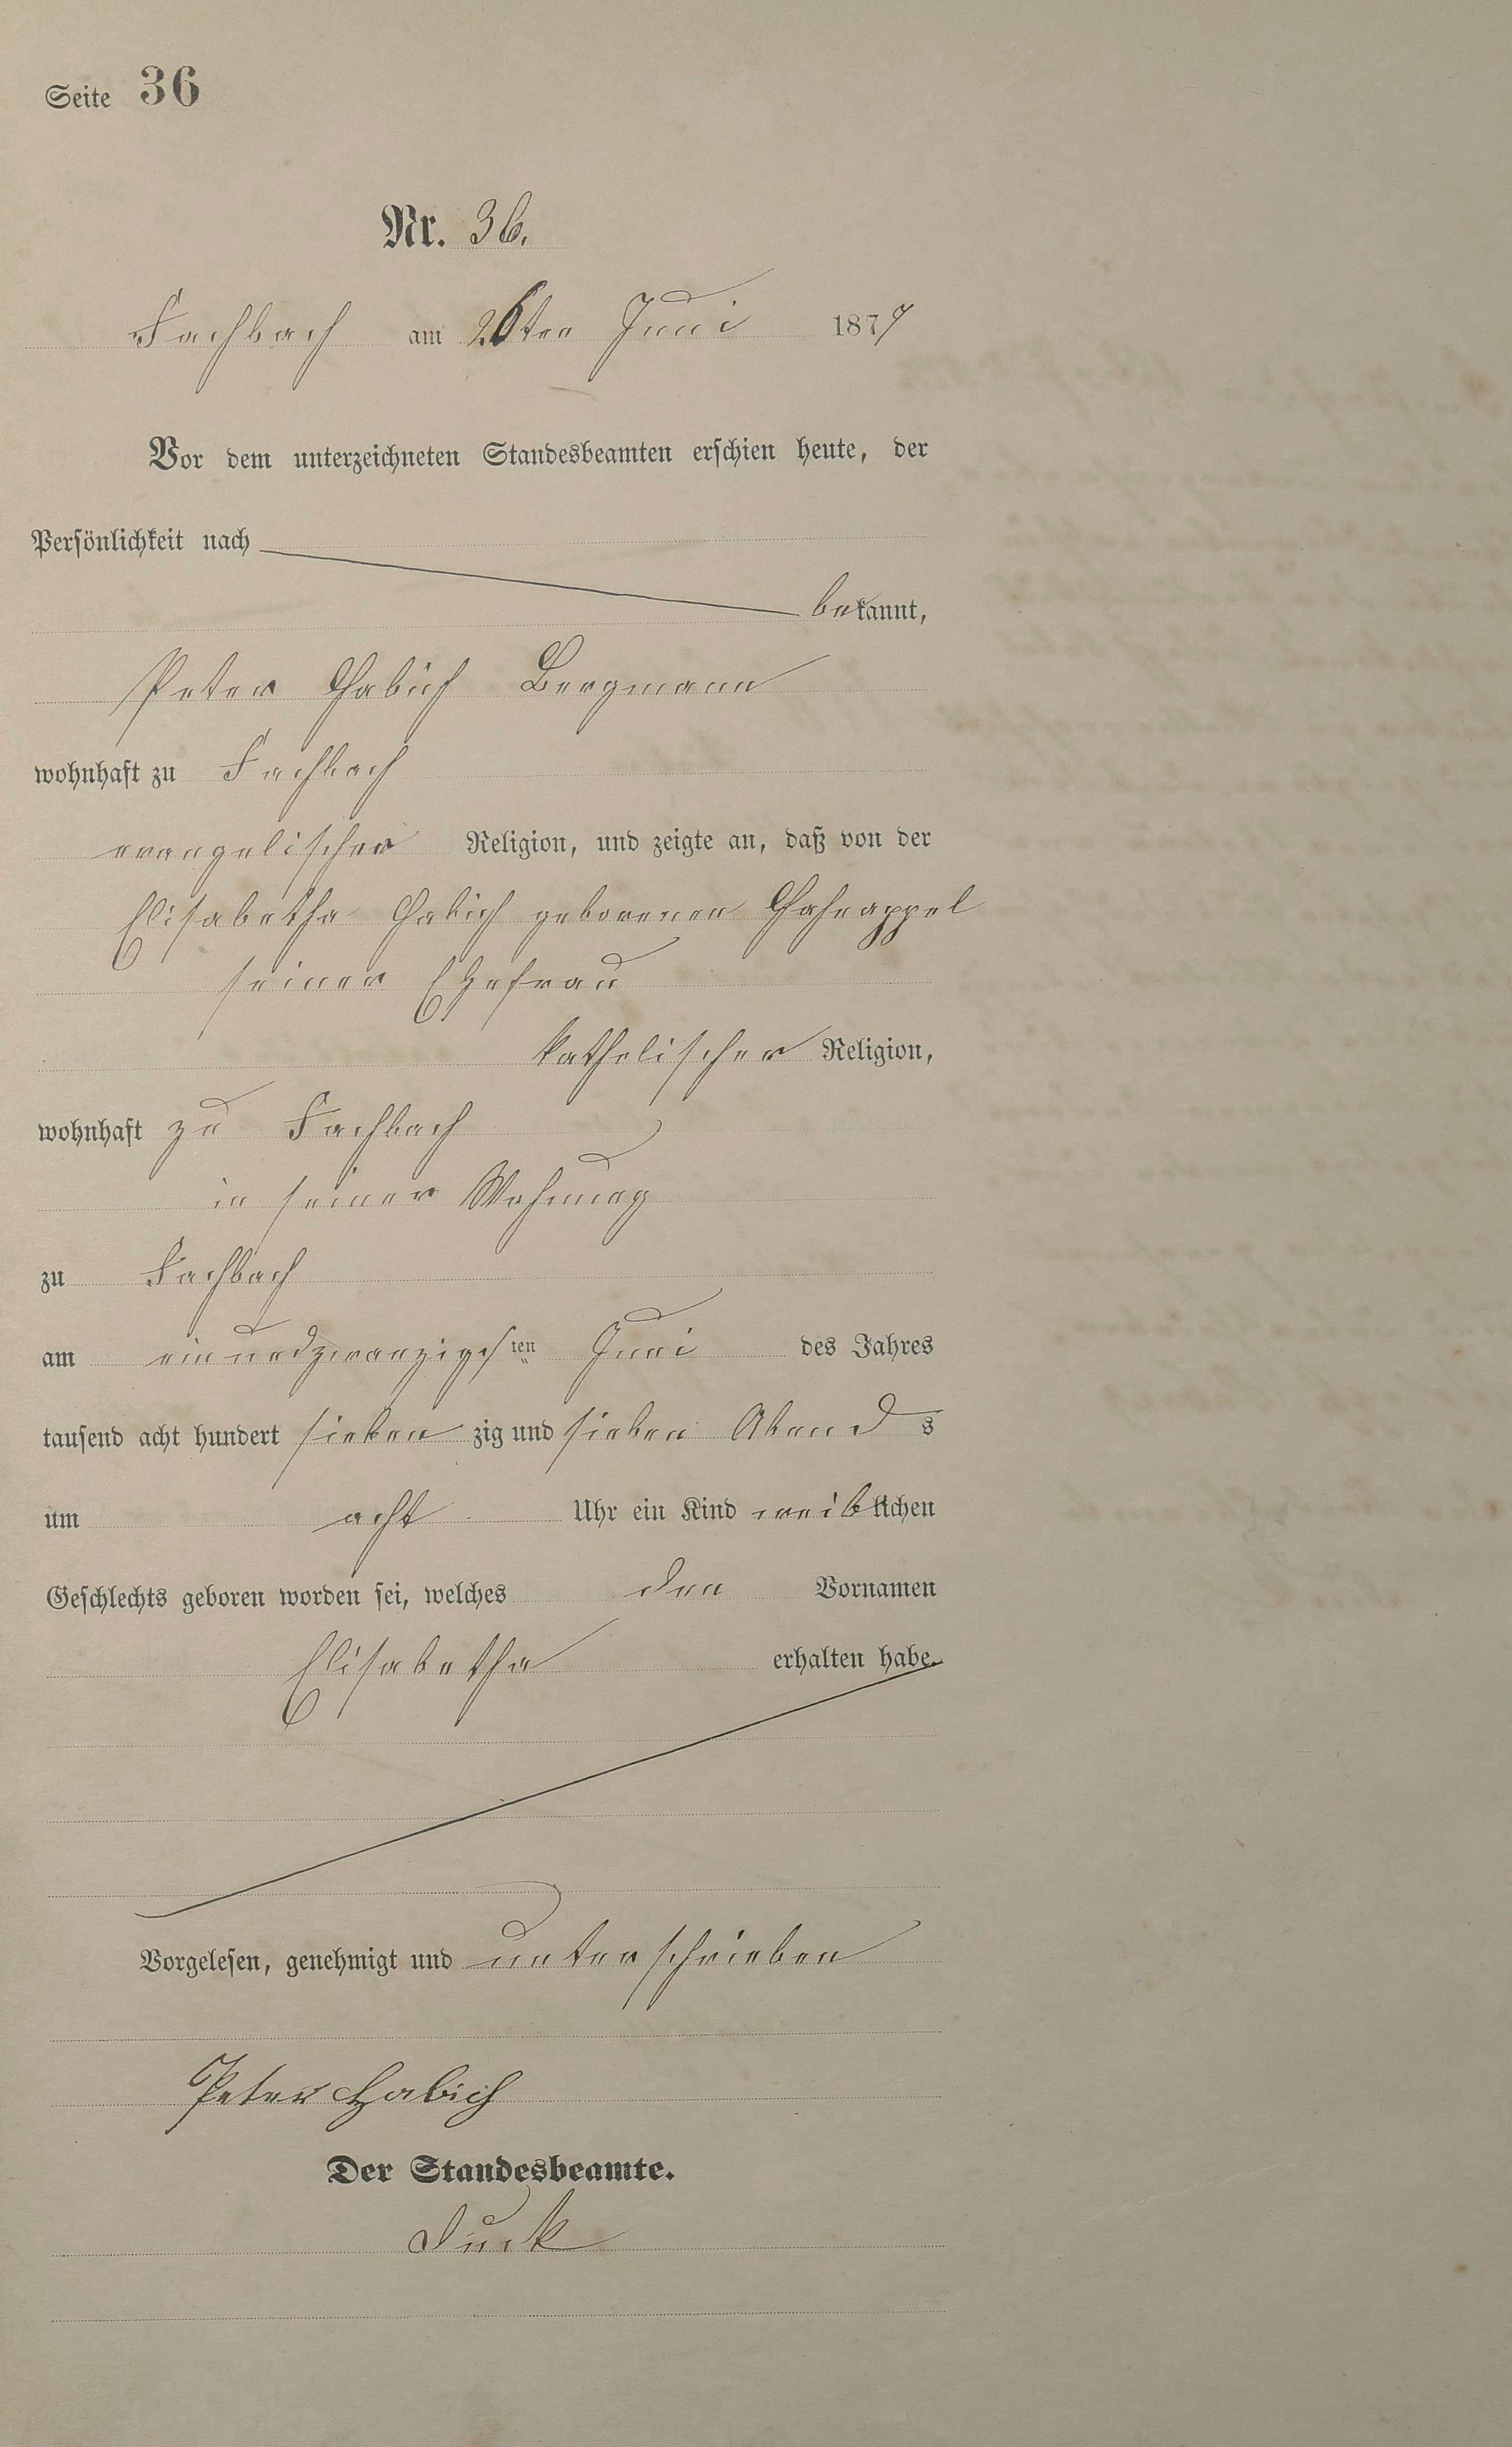 Seite 36
Nr. 36.
Fachbach am 26ten Juni 1877
Vor dem unterzeichneten Standesbeamten erschien heute, der
Persönlichkeit nach
bekannt,
Peter Habich Bergmann
wohnhaft zu Fachbach
evangelischer Religion, und zeigte an, daß von der
Elisabetha Habich geborenen Hahnappel
seiner Ehefrau
katholischer Religion,
wohnhaft zu Fachbach
in seiner Wohnung
zu Fachbach
am einundzwanzigsten Juni des Jahres
tausend acht hundert sieben zig und sieben Abends
um acht Uhr ein Kind weiblichen
Geschlechts geboren worden sei, welches den Vornamen
Elisabetha erhalten habe.
Vorgelesen, genehmigt und unterschrieben
Peter Habich
Der Standesbeamte.
Duck